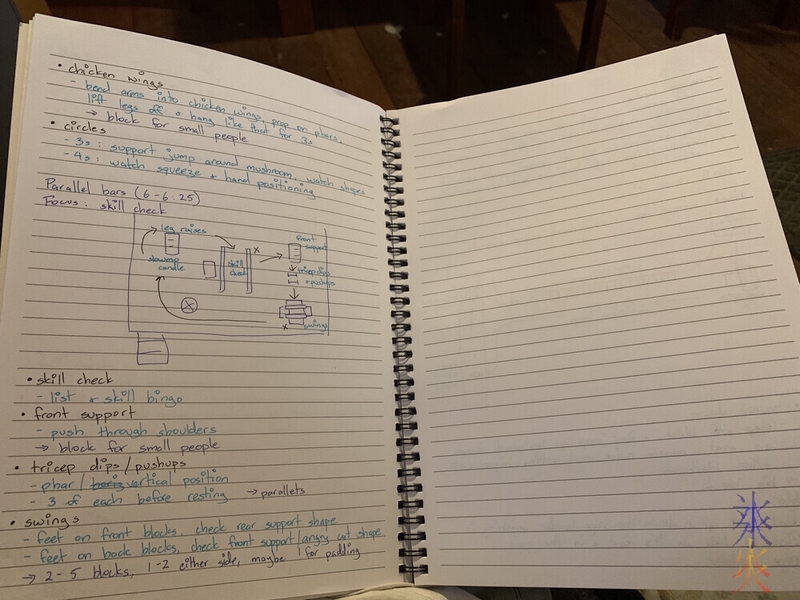 • chicken wings
- bend arms into chicken wings, prop or pbars,
lift legs off & hang like that for 3s
→ block for small people
• circles
- 3s: support jump around mushroom, watch shapes
- 4s: watch squeeze & hand positioning
Parallel bars (6-6:25)
Focus: skill check
leg raises
candle
skill check
x
front support
tricep dips
& pushups
swings
x
• skill check
- list & skill bingo
• front support
- push through shoulders
→ block for small people
• tricep dips/pushups
- pbar/ vertical position
- 3 of each before resting → parallets
• swings
- feet on front blocks, check rear support shape
- feet on back blocks, check front support/angry cat shape
→ 2-5 blocks, 1-2 either side, maybe 1 for padding